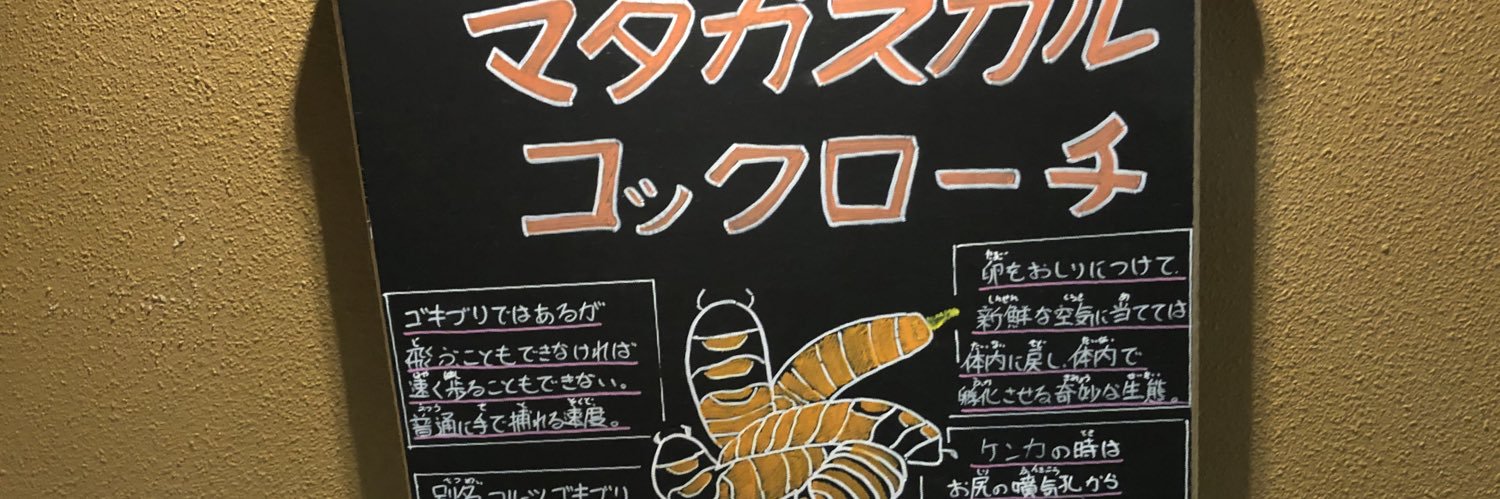 マダガスカル
コックローチ
ゴキブリではあるが
飛ぶこともできなければ
速く歩ることもできない。
普通に手で捕れる速度。
別名フルーツゴキブリ
卵をおしりにつけて、
新鮮な空気に当てては
体内に戻し、体内で
孵化させる奇妙な生態。
ケンカの時は
お尻の噴気孔から